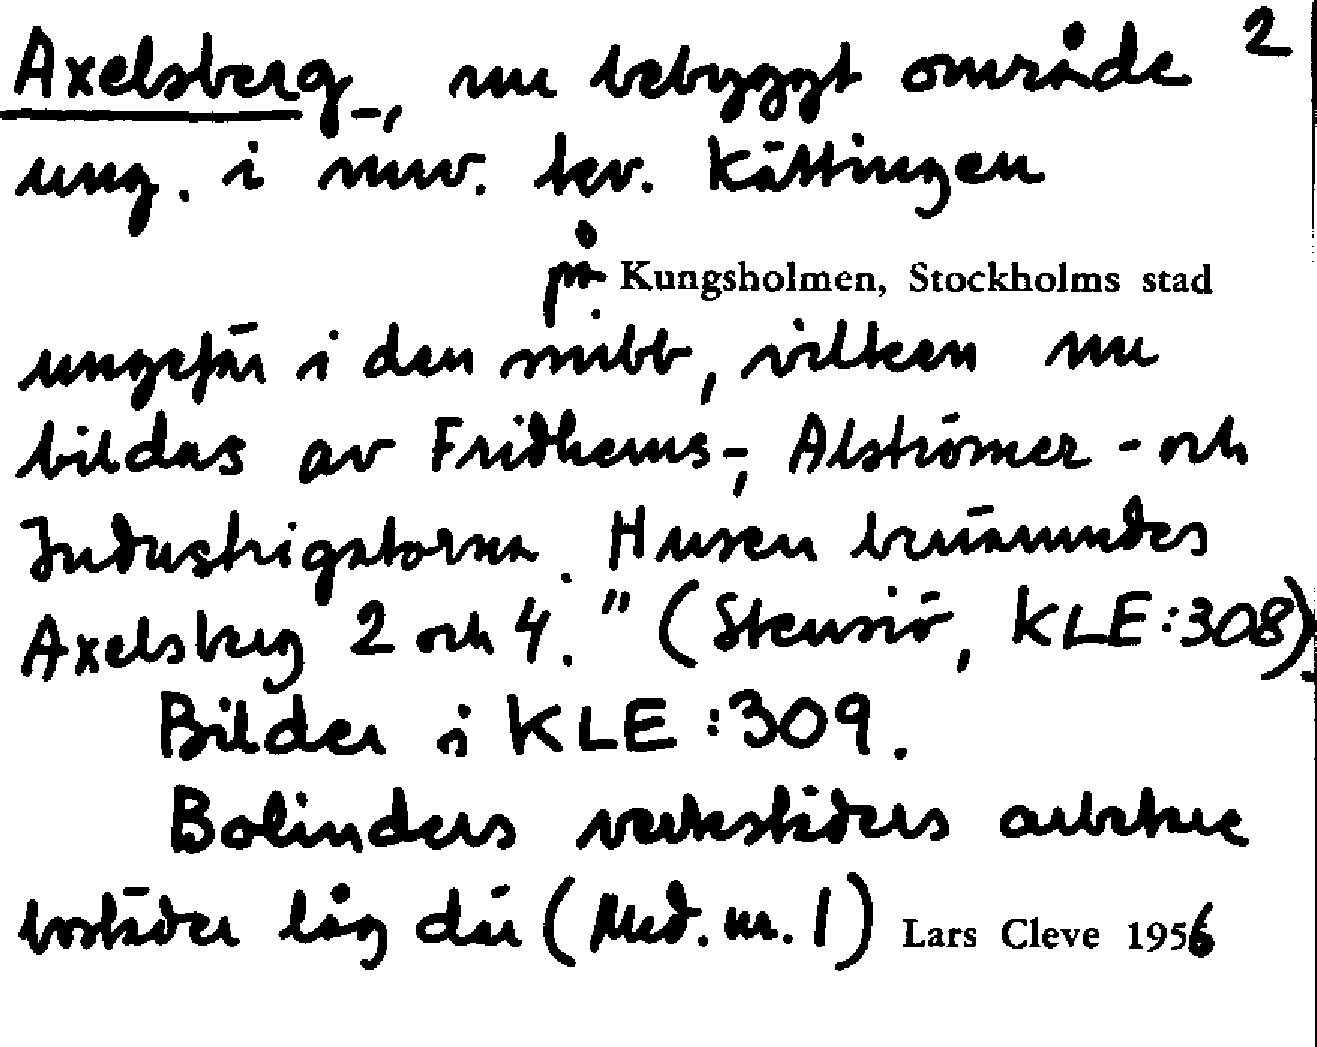 Axelsberg, nu bebyggt område 2
ung. i nuv. kv. Kättingen
på Kungsholmen, Stockholms stad
ungefär i den mitt, vilken nu
bildas av Fridhems-, Alströmer- och
Industrigatorna. Husen benämndes
Axelsberg 2 och 4." (Stensiö, KLE:308).
Bilder i KLE:309.
Bolinders verkstäders arbetare
bostäder låg där (Med. nr. 1) Lars Cleve 1956